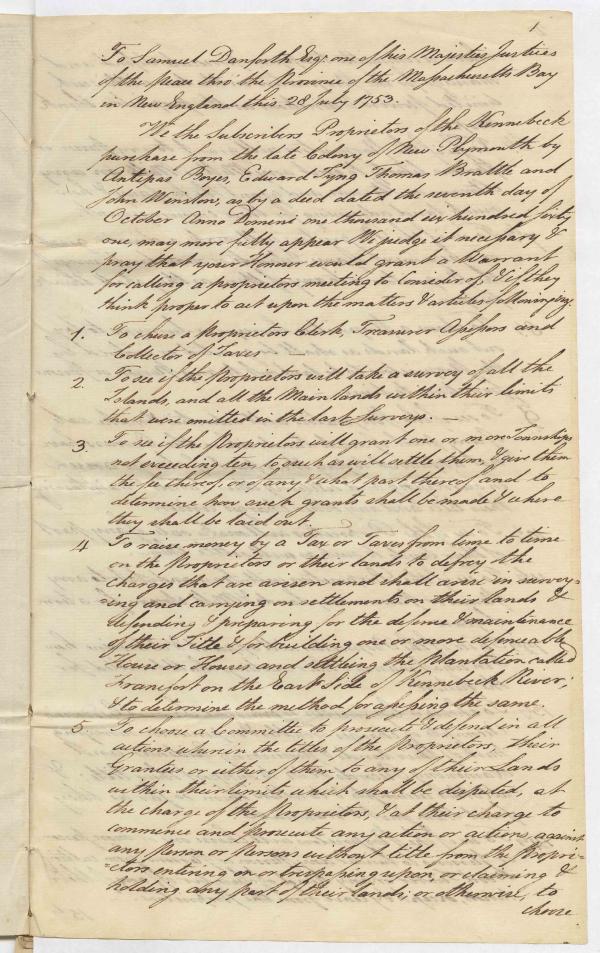 1
To Samuel Danforth Esqr. one of his Majesties Justices
of the peace thro' the Province of the Massachusetts Bay
in New England this 28 July 1753.
We the Subscribers Proprietors of the Kennebeck
purchase from the late Colony of New Plymouth by
Antipas Boyes, Edward Tyng Thomas Brattle and
John Winslow, as by a deed dated the seventh day of
October Anno Domini one thousand six hundred sixty
one, may more fully appear We judge it necessary &
pray that your Honour would grant a Warrant
for calling a proprietors meeting to Consider of, & if they
think proper to act upon the matters & articles following viz.
1. To chuse a Proprietors Clerk, Treasurer Assessors and
Collector of Taxes. —
2. To see if the Proprietors will take a survey of all the
Islands, and all the Main lands within their limits
that were omitted in the last Surveys. —
3. To see if the Proprietors will grant one or more Townships
not exceeding ten, to such as will settle them, & give them
the fee thereof, or of any & what part thereof and to
determine how such grants shall be made & where
they shall be laid out.
4 To raise money by a Tax or Taxes from time to time
on the Proprietors or their lands to defrey the
charges that are arisen and shall arise in survey-
=ing and carrying on settlements on their lands &
defending & preparing for the defense & maintenance
of their Title & for building one or more defenceable
House or Houses and settleing the plantation called
Francfort on the East Side of Kennebeck River;
& to determine the method for assessing the same.
5. To choose a Committee to prosecute & defend in all
actions wherein the titles of the Proprietors, their
Grantees or either of them to any of their Lands
within their limits which shall be disputed, at
the charge of the Proprietors, & at their charge to
commence and prosecute any action or actions, against
any person or persons without title from the Propri-
=etors entering on or trespassing upon, or claiming &
holding any part of their lands; or otherwise, to
choose